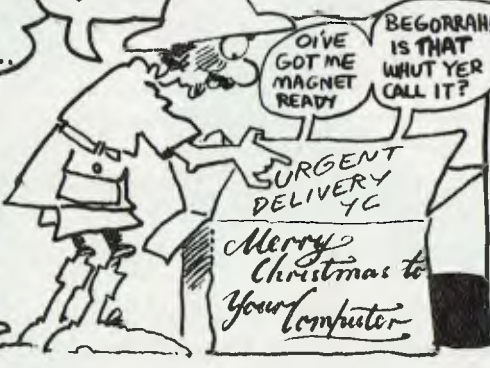 ...
OI'VE
GOT ME
MAGNET
READY
BEGORRAH
IS THAT
WHUT YER
CALL IT?
URGENT
DELIVERY
YC
Merry
Christmas to
Your Computer